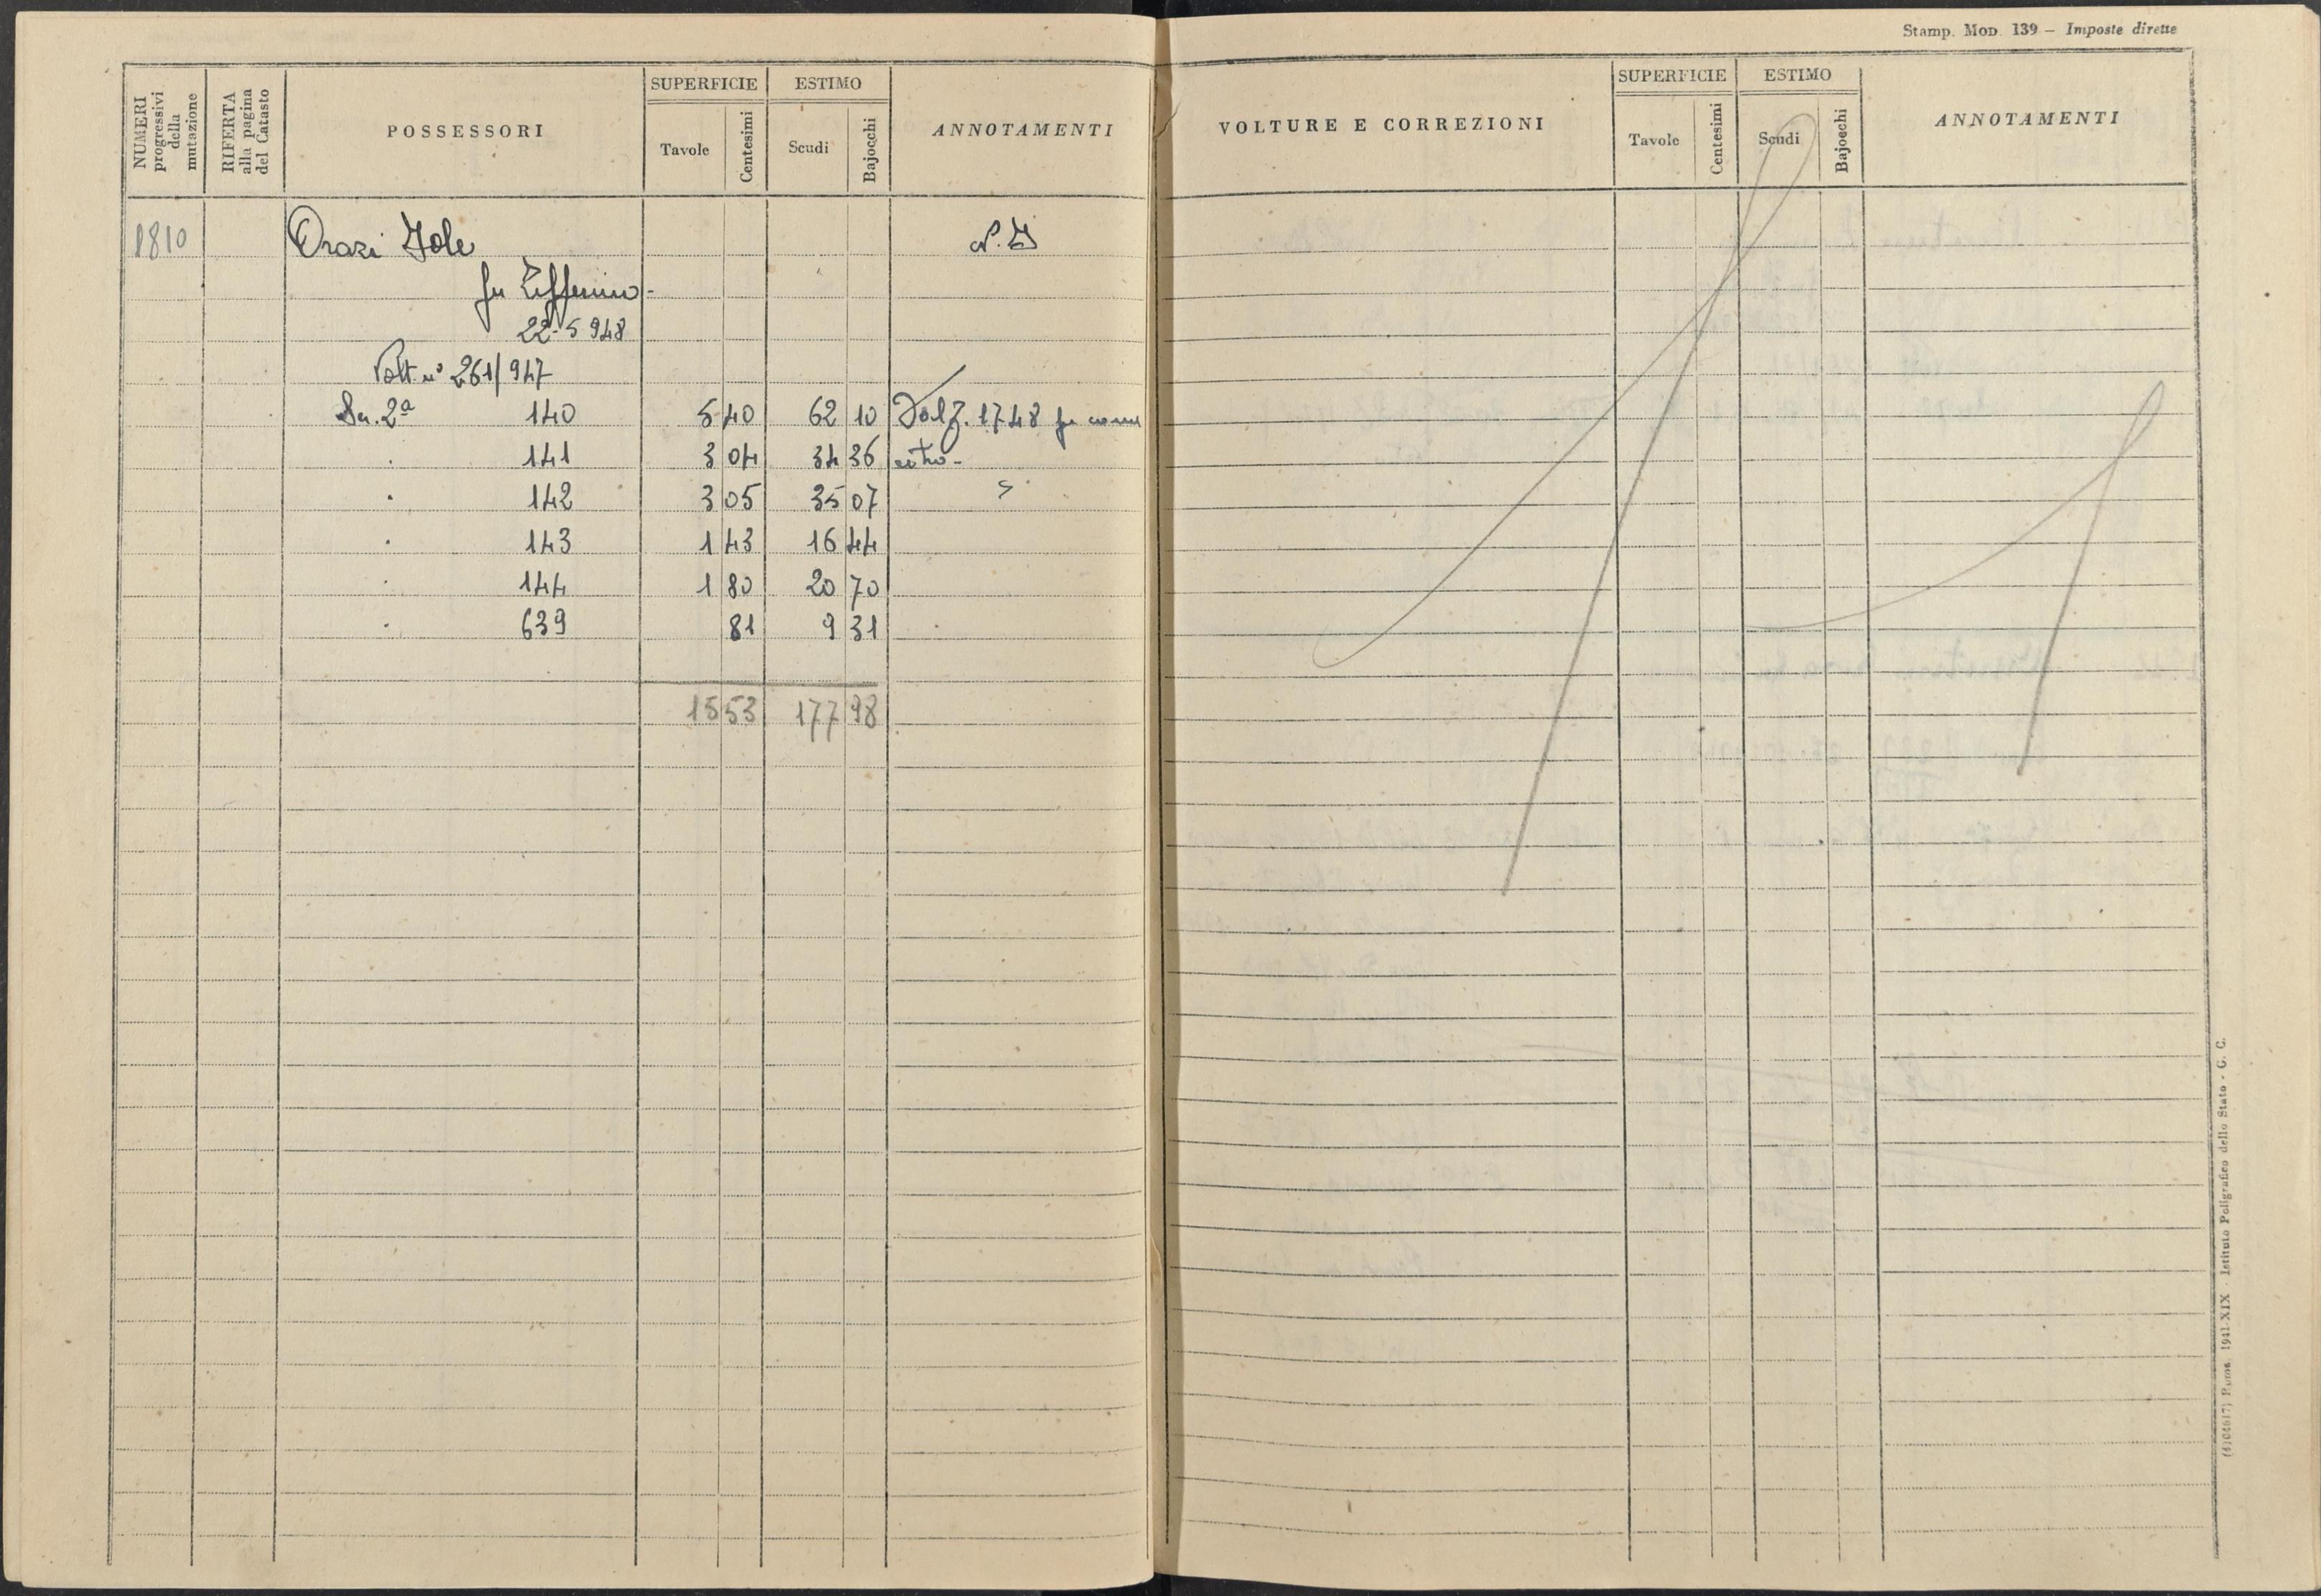 Stamp. Mod. 139 — Imposte dirette
NUMERI progressivi della mutazione
RIFERTA alla pagina del Catasto
POSSESSORI
SUPERFICIE
Tavole
Centesimi
ESTIMO
Scudi
Bajocchi
ANNOTAMENTI
1810 Orazi Jole
fu Zefferino -
22-5 948
Volt. n° 261/947
Sez. 2ª 140 5 40 62 10 Dal f. 1748 per
141 3 04 34 36
142 3 05 35 07
143 1 43 16 44
144 1 80 20 70
639 81 9 31
15 53 177 98
VOLTURE E CORREZIONI
SUPERFICIE
Tavole
Centesimi
ESTIMO
Scudi
Bajocchi
ANNOTAMENTI
(4104617) Roma, 1941-XIX - Istituto Poligrafico dello Stato - G. C.